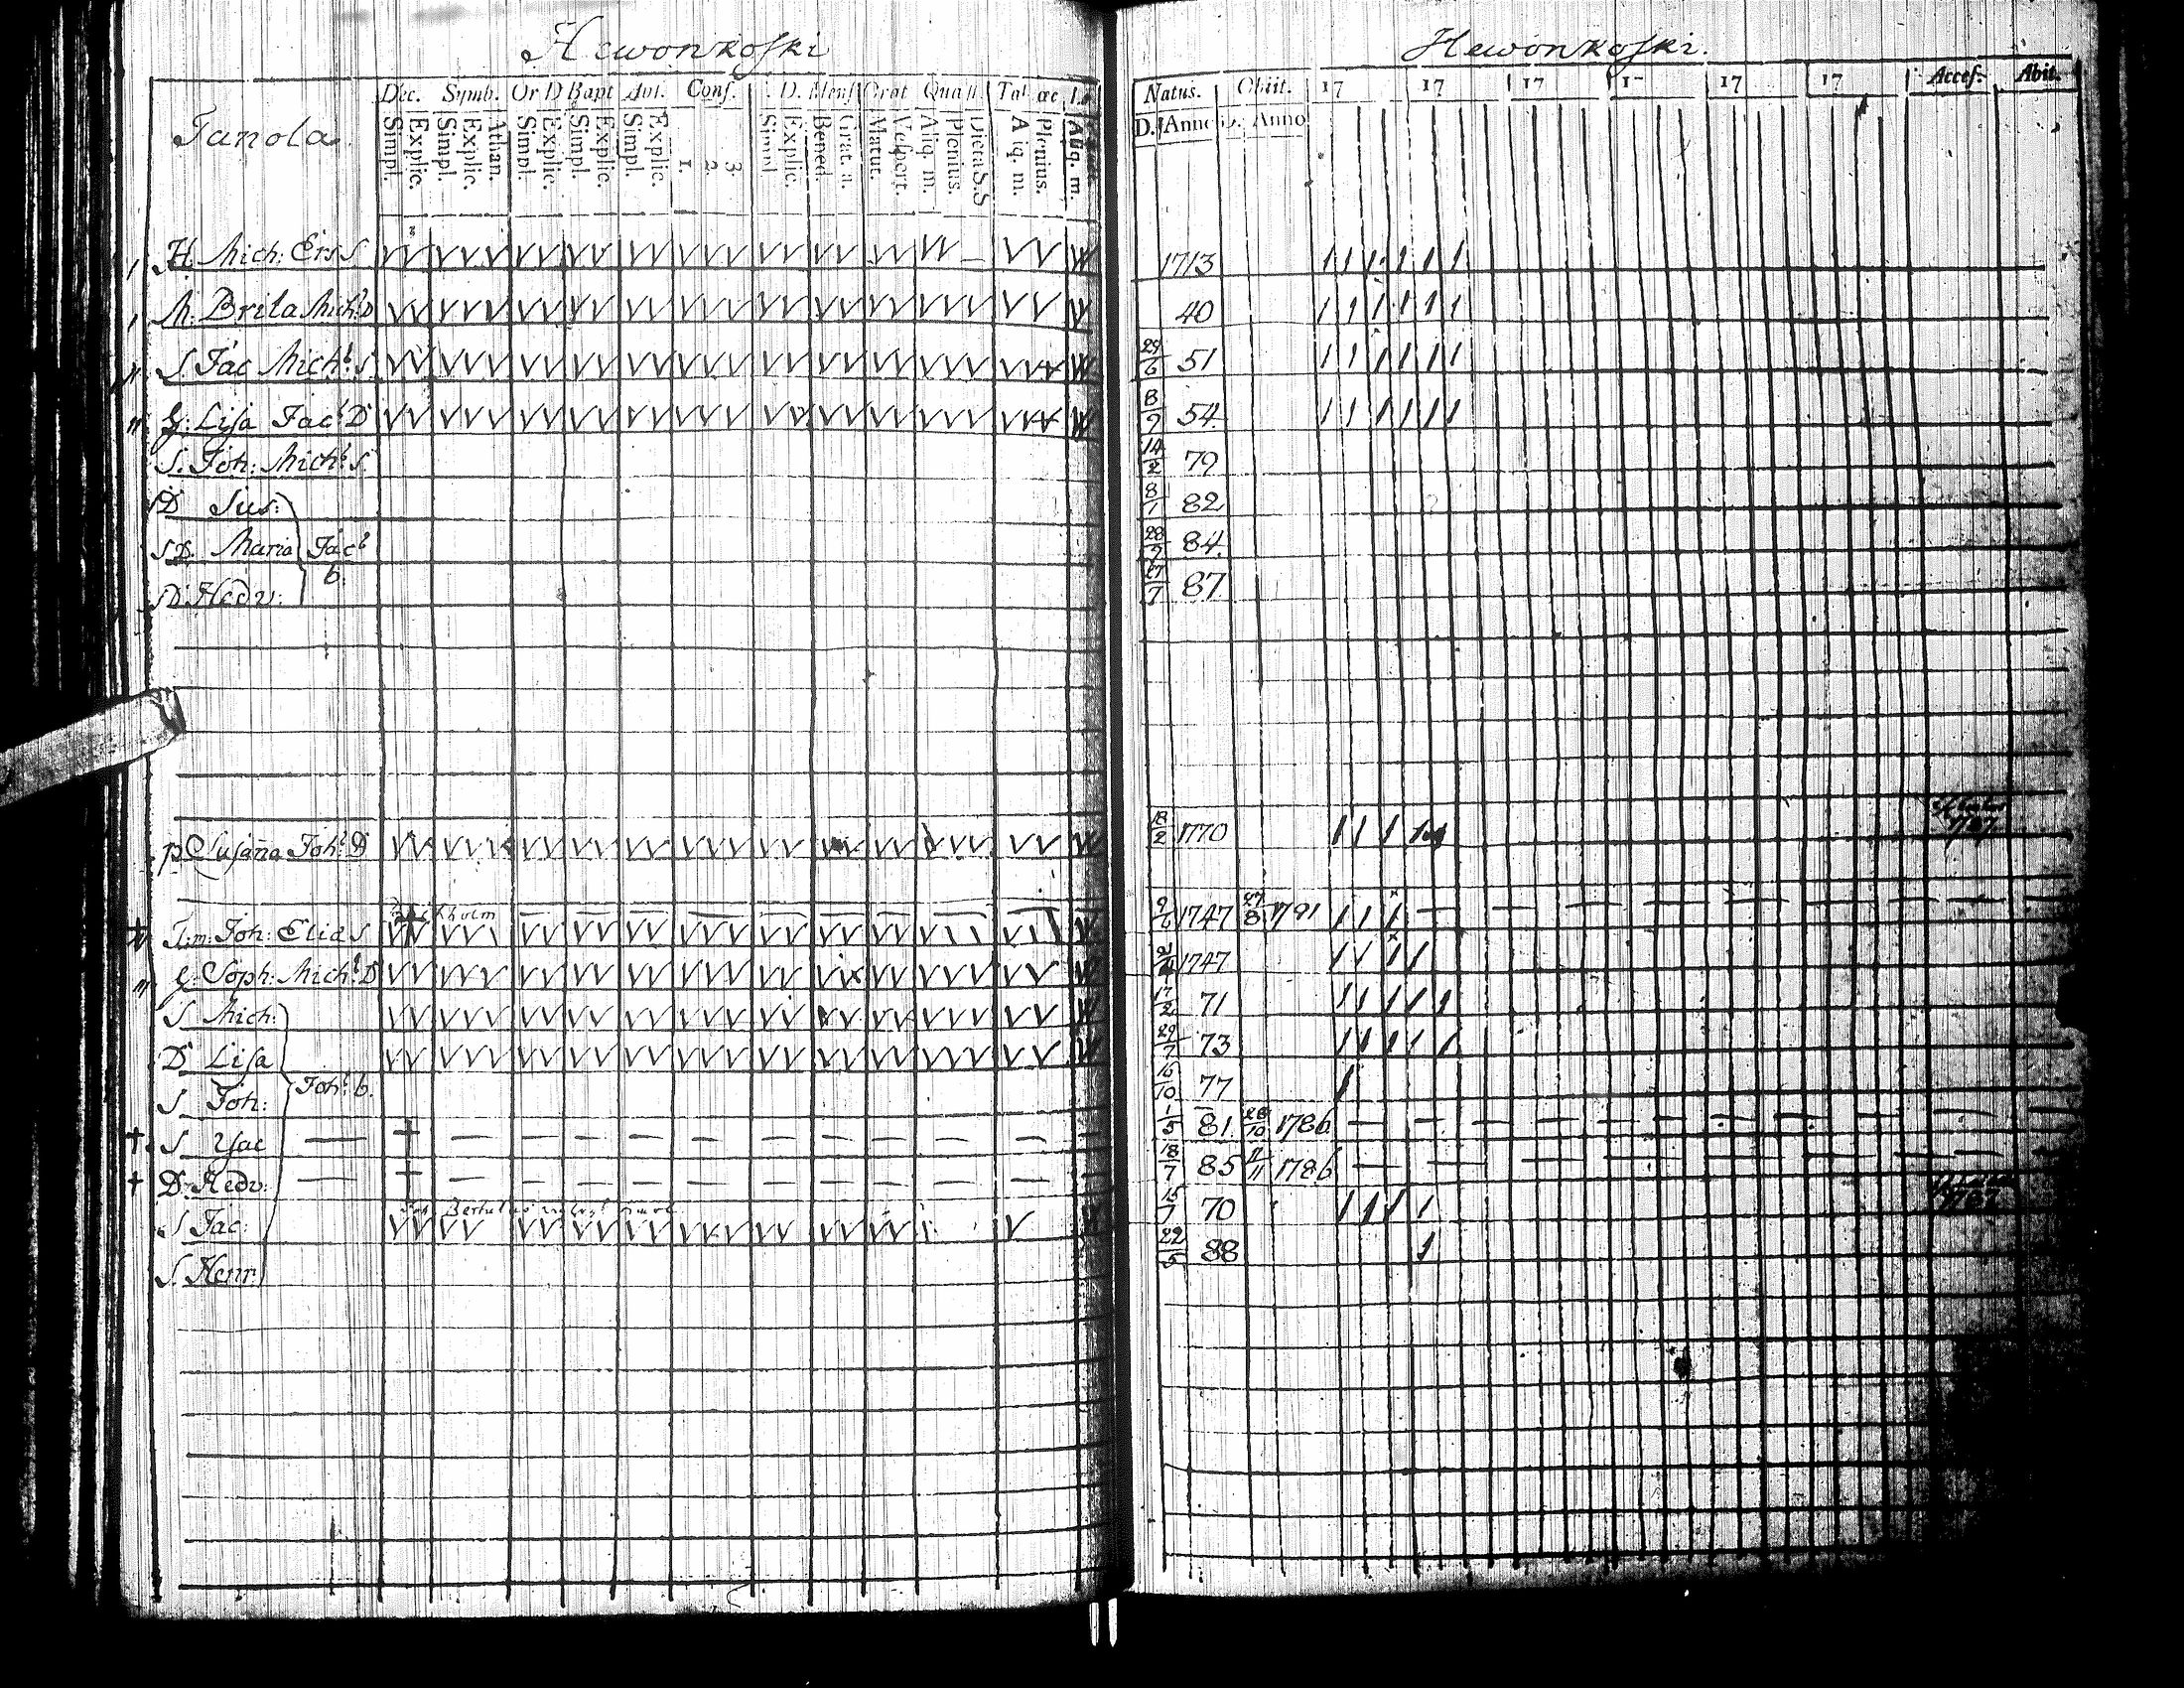 Hewonkoski
Dec. Symb. Or D Bapt Abs. Conf. C. D. Mens Orat Quæst. Tab. œc
Simpl. Explic. Simpl. Explic. Athan. Simpl. Explic. Simpl. Explic. Simpl. Explic. 1. 2. 3. Simpl. Explic. Bened. Grat. a. Matut. Vespert. Aliq. m. Plenius. Dicta S.S Aliq. m. Plenius. Aliq. m.
Tanola
H. Mich: Ers S.
M: Brita Mich: D
S Jac Mich: S
H: Lisa Jac: D
S. Joh: Mich: S.
D Sus:
D. Maria Jac:
b.
D: Hedv:
p Susaña Joh: D
holm
Joh: Elias
Soph: Mich: D
S Mich:
D Lisa
Joh: b.
S Joh:
S Jac
D: Hedv:
S Jac:
S Henr:
Hewonkoski.
Natus. Obiit. 17 17 17 17 17 17 Acces. Abit.
D. Anno D. Anno
1713
40
29/6 51
8/9 54
14/2 79
8/1 82
28/9 84
27/7 87
18/2 1770 1787
9/6 1747 27/8 1791
2/4 1747
17/2 71
29/7 73
16/10 77
1/5 81 28/10 1786
18/7 85 11/11 1786
15/7 70 1787
22/5 88